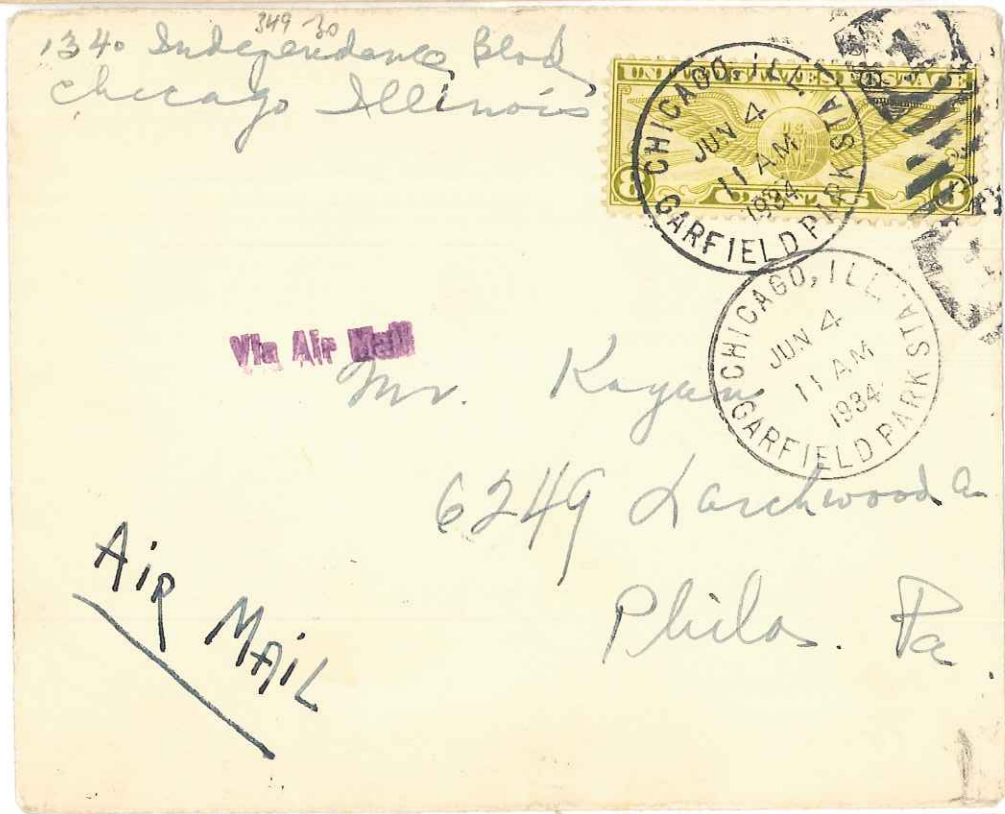 349-30
1340 Independence Blvd
Chicago Illinois
UNITED STATES POSTAGE
U.S.
8 8
CHICAGO, ILL.
JUN 4
11 AM
1934
GARFIELD PARK STA.
CHICAGO, ILL.
JUN 4
11 AM
1934
GARFIELD PARK STA.
Via Air Mail
Mr. Kagan
6249 Larchwood a
Phila. Pa.
AIR MAIL